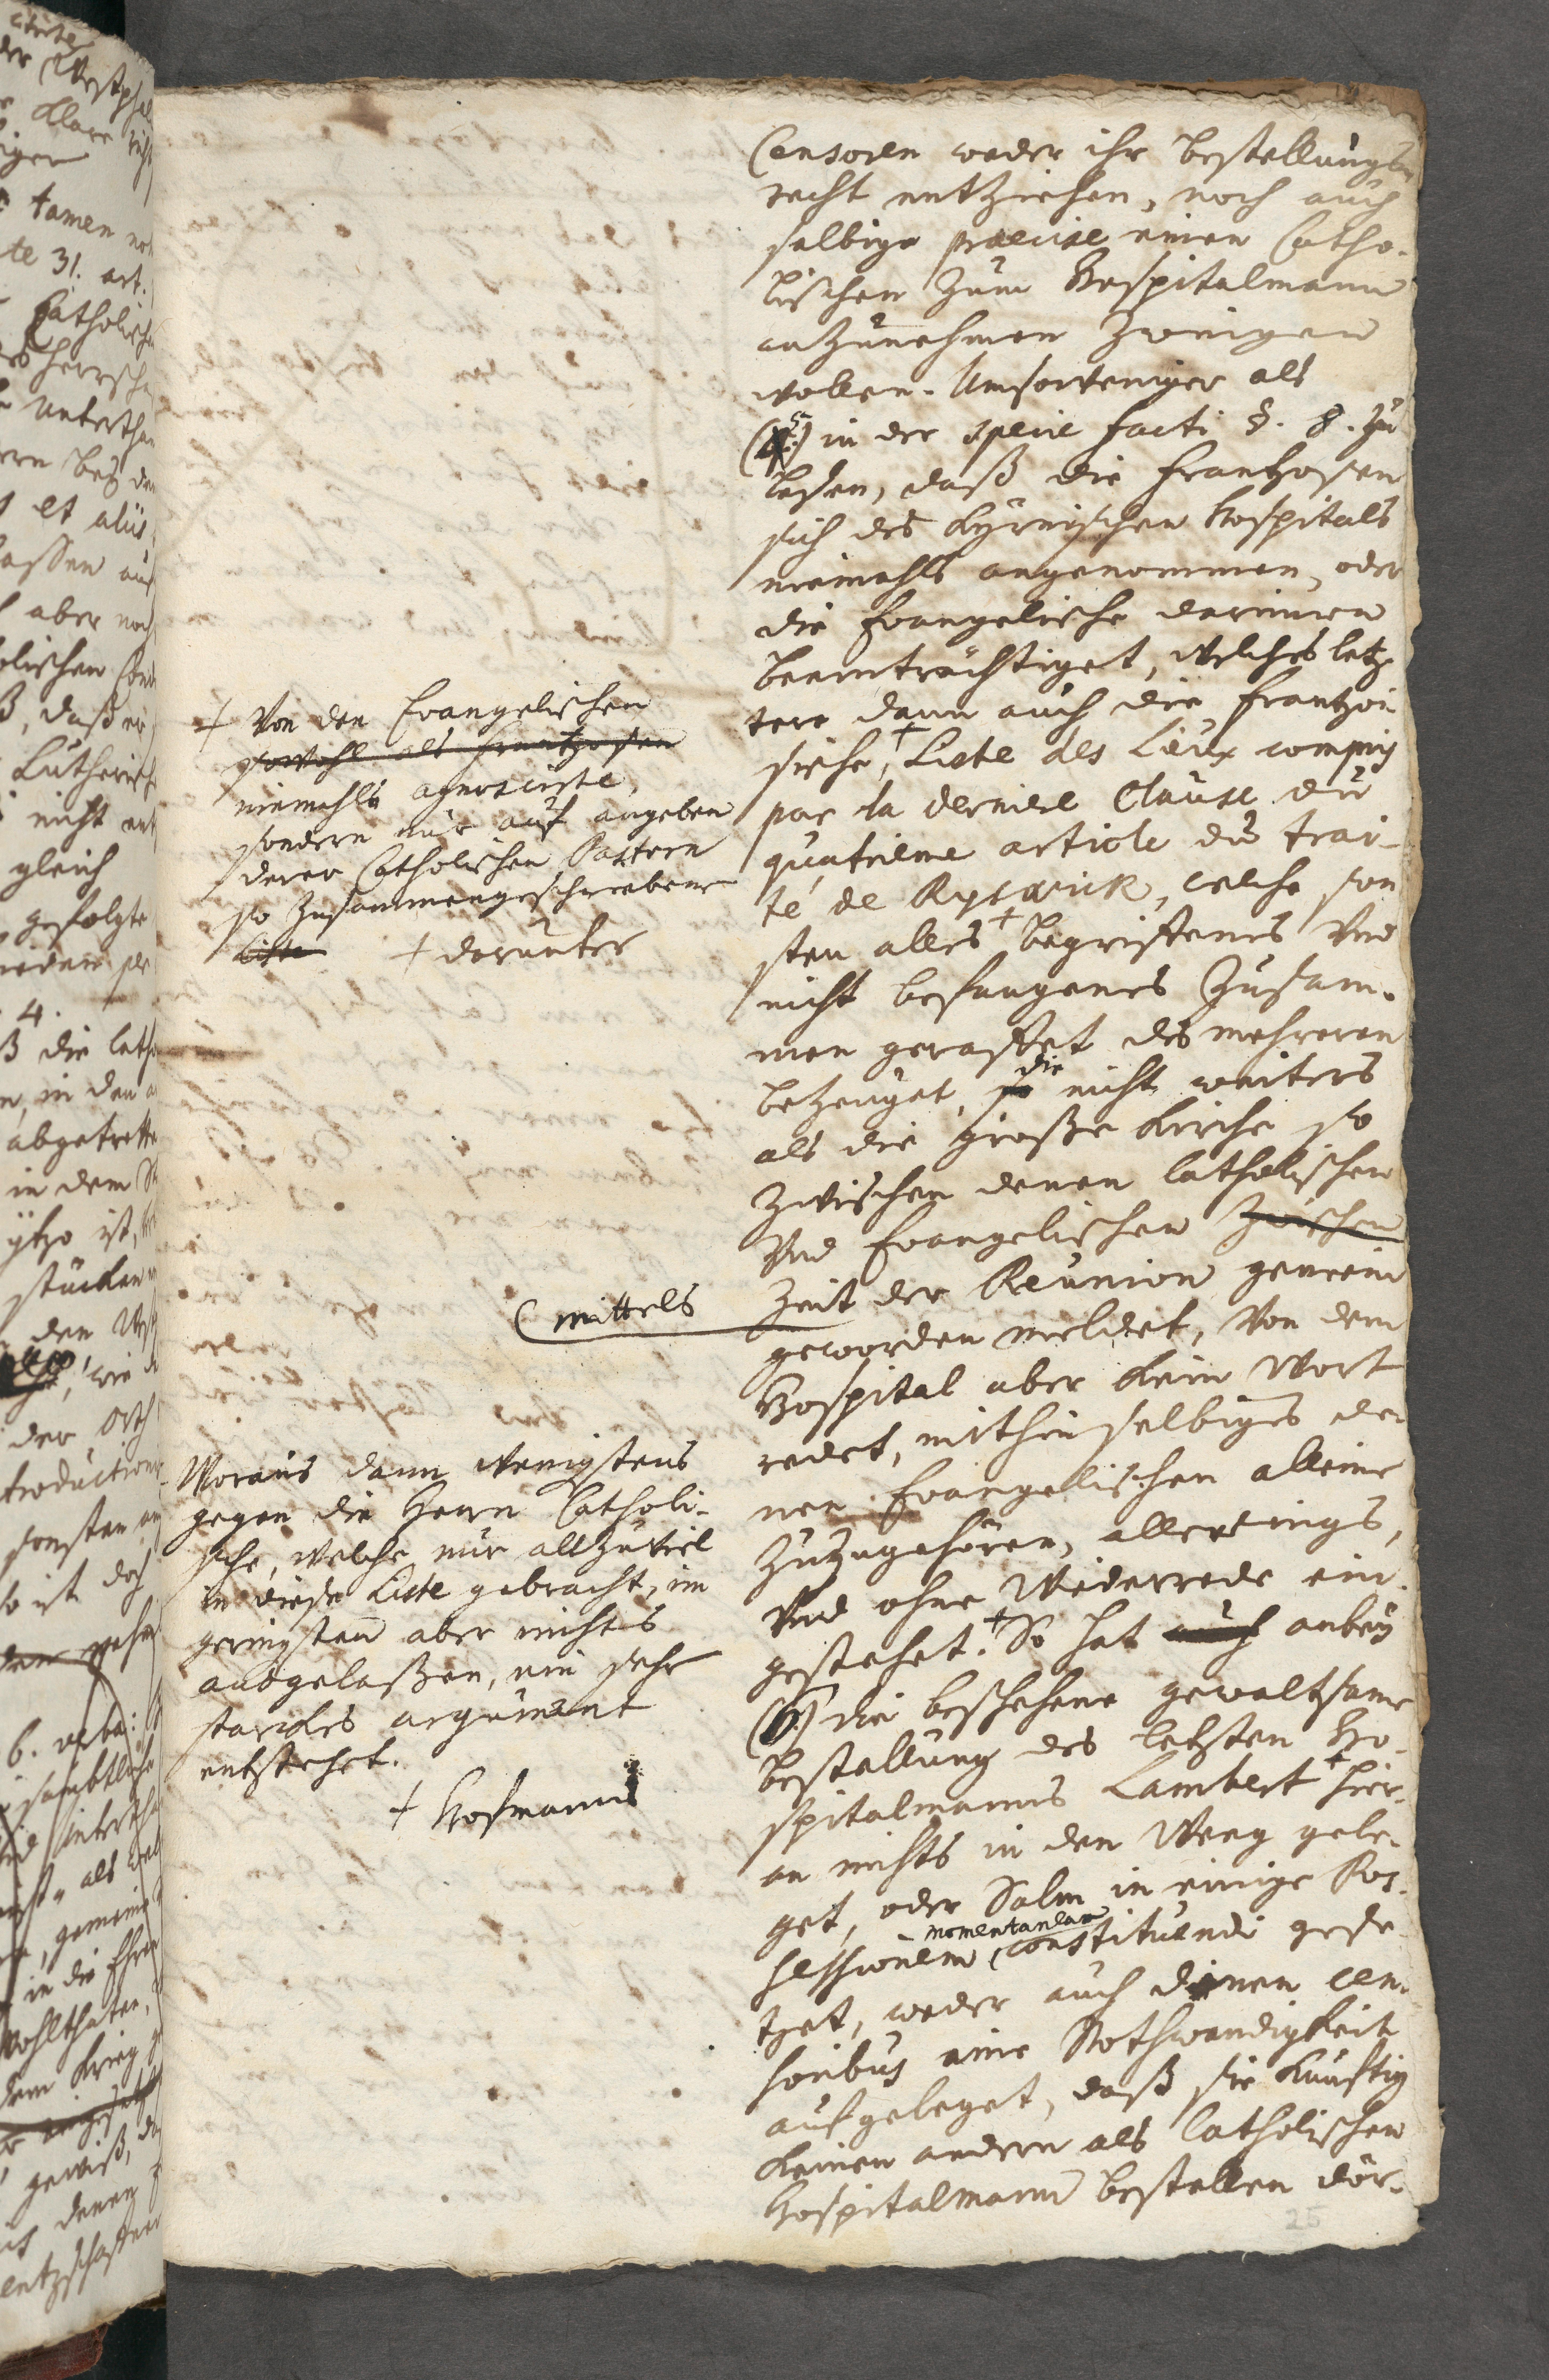 Censoren weder ihr bestellungs-
recht entziehen, noch auch
selbige præcise einen Catho-
lischen zum Hospitalmann
anzunehmen zwingen
wollen. Umsoweniger als
(5.) in der specie facti §. 8. zu
lesen, daß die Frantzosen
sich des Kyrnischen Hospitals
niemahls angenommen, oder
die Evangelische darinnen
beeinträchtiget, welches letz-
tere dann auch die frantzö-
sische + Liste des Lieux compris
par la derniere Clause du
quatrieme article du trai-
té de Ryswick, welche son
sten alles + begriffenes und
nicht befangenes zusam-
men geraffet des mehreren
bezeuget, so die nicht weiters
als die große Kirche so
zwischen denen Catholischen
und Evangelischen zwischen
Zeit der Reunion gemein
geworden meldet, von dem
Hospital aber kein Wort
redet, mithin selbiges de-
nen Evangelischen alleine
zuzugehören, allerdings,
und ohne Widerrede ein-
gestehet. + So hat auch anbey
(6.) die beschehene gewaltsame
bestallung des letzten Ho-
spitalmanns Lambert + hier-
an nichts in den Weeg gele-
get, oder Salm in einige Pos-
sessionem momentaneam constituendi gese-
tzet, weder auch denen cen-
soribus eine Nothwendigkeit
aufgeleget, daß sie künftig
keinen andern als Catholischen
Hospitalmann bestellen dör-
+ Von den Evangelischen
sowohl als Frantzosen
niemahls agnoscirte,
sondern nur auf angeben
derer Catholischen Pattern
so zusammengeschriebene
Liste + darunter
( mittels
Woraus dann wenigstens
gegen die Herrn Catholi-
sche, welche nur allzuviel
in diese Liste gebracht, im
geringsten aber nichts
ausgelaßen, ein sehr
starckes argument
entstehet.
+ Hofmanns
25